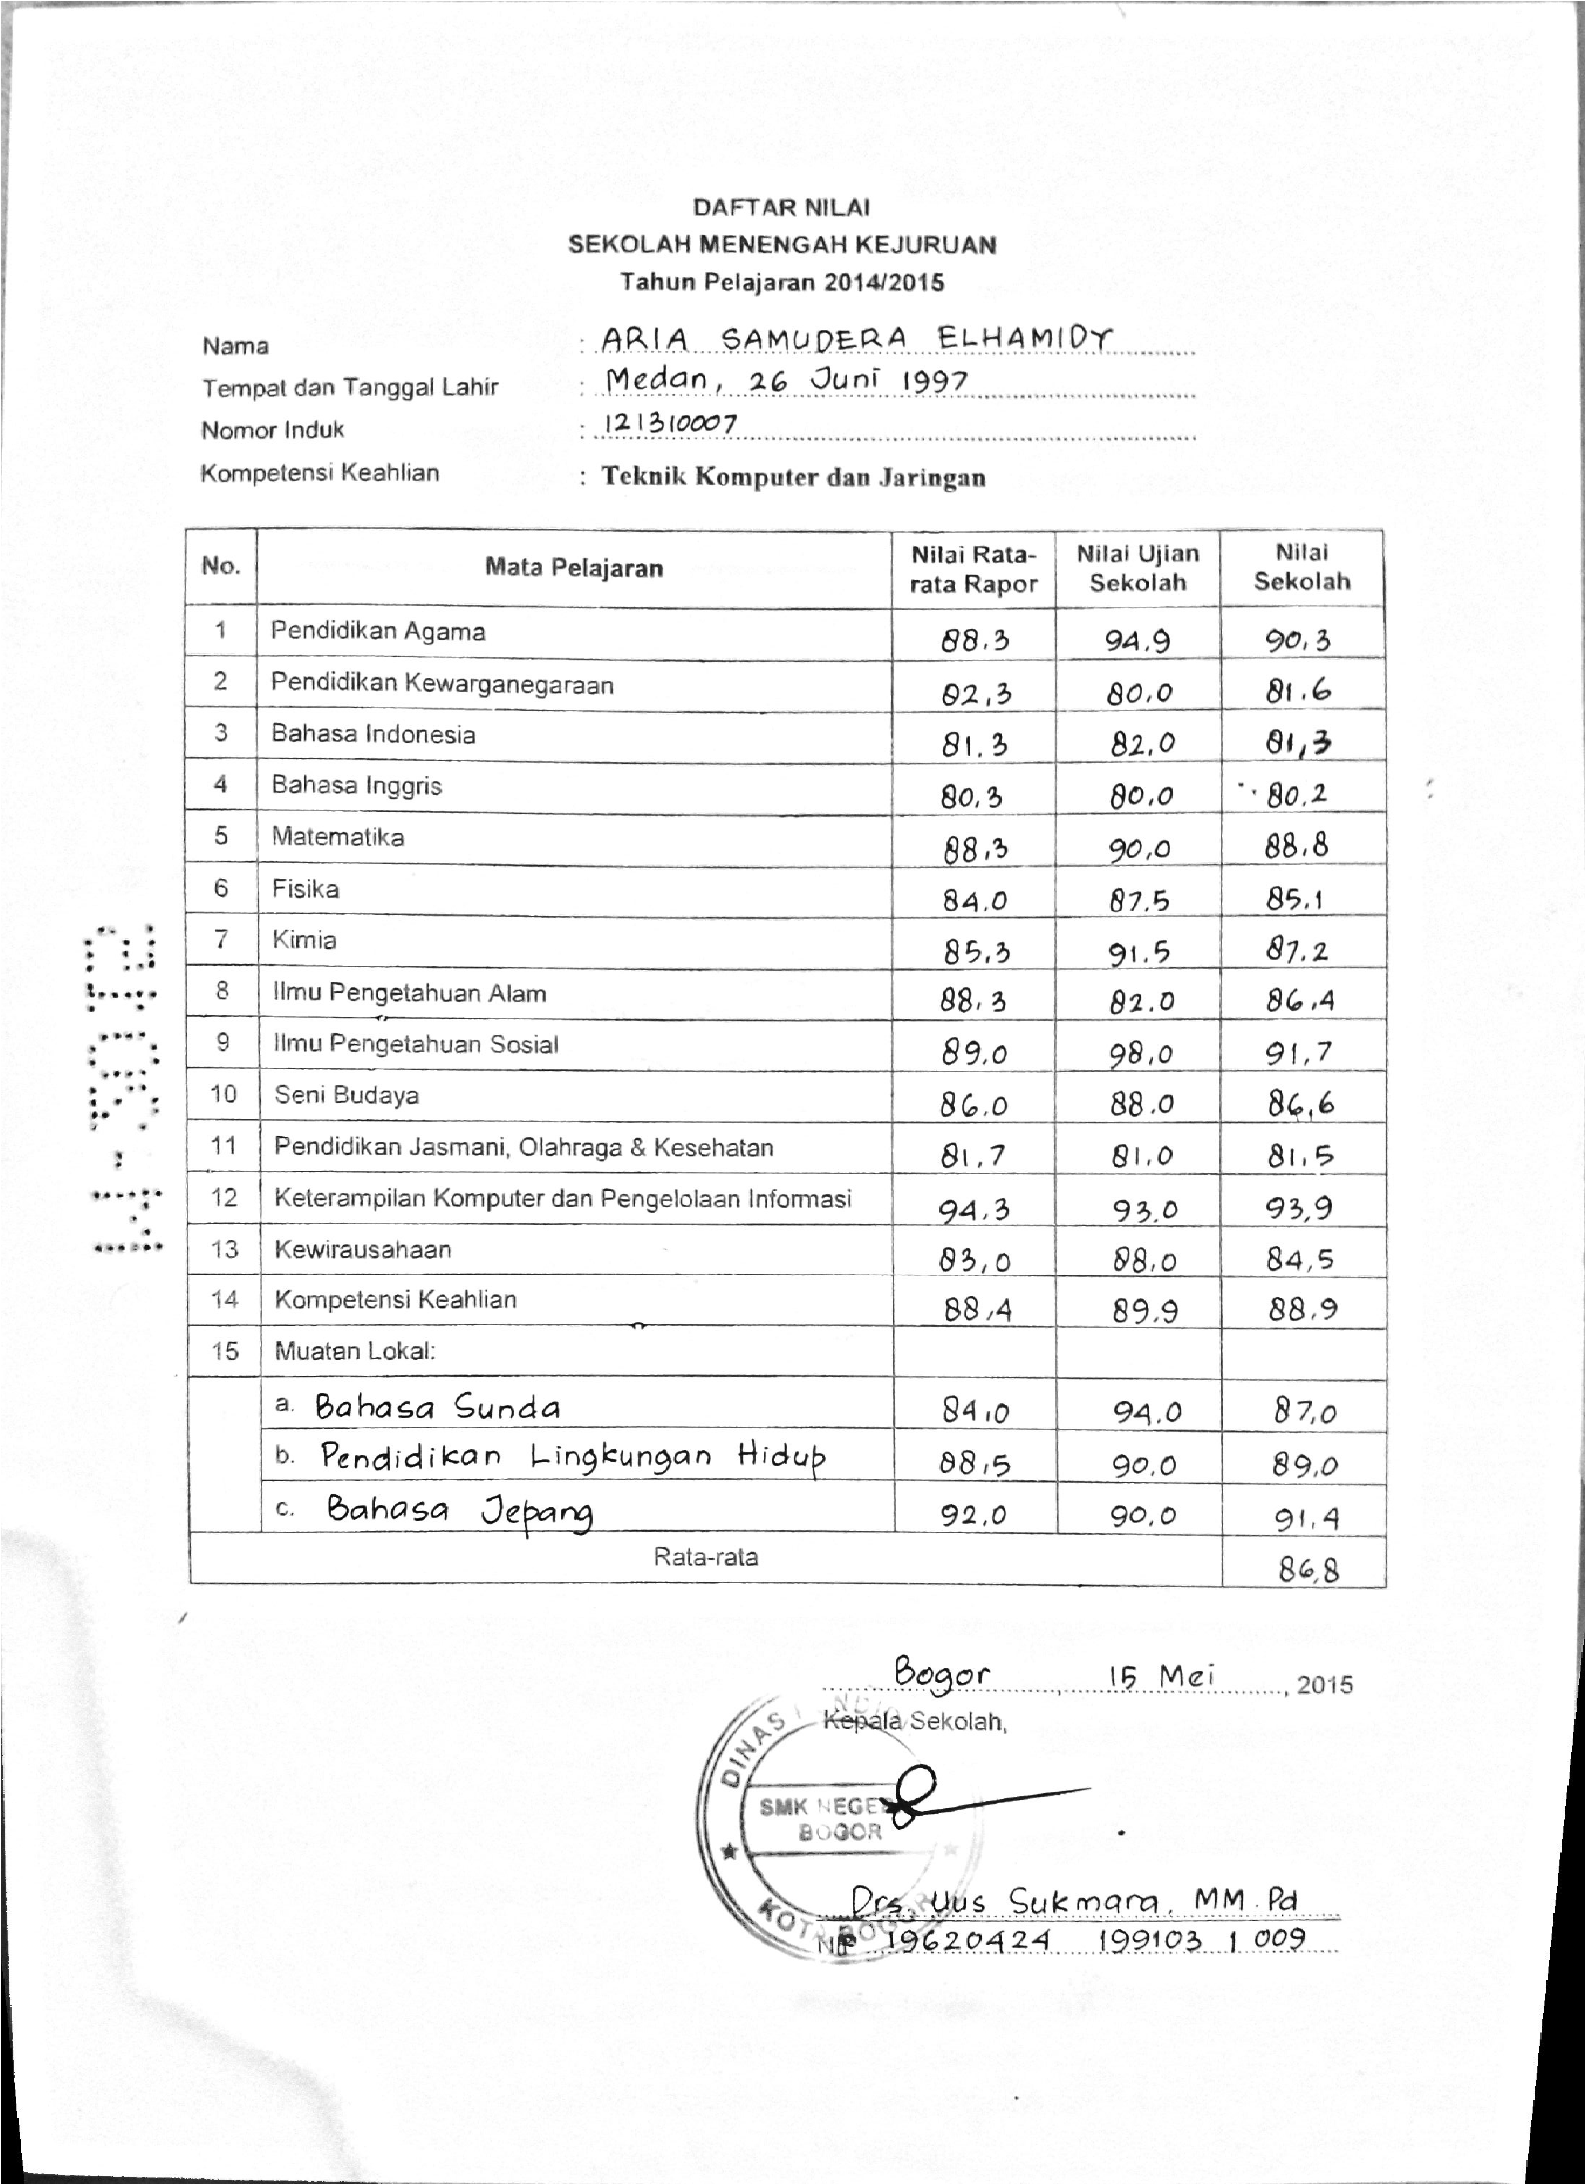 DAFTAR NILAI
SEKOLAH MENENGAH KEJURUAN
Tahun Pelajaran 2014/2015
Nama : ARIA SAMUDERA ELHAMIDY
Tempat dan Tanggal Lahir : Medan, 26 Juni 1997
Nomor Induk : 121310007
Kompetensi Keahlian : Teknik Komputer dan Jaringan
No. Mata Pelajaran Nilai Rata-rata Rapor Nilai Ujian Sekolah Nilai Sekolah
1 Pendidikan Agama 88.3 94.9 90,3
2 Pendidikan Kewarganegaraan 82,3 80,0 81.6
3 Bahasa Indonesia 81.3 82,0 81,3
4 Bahasa Inggris 80,3 80,0 80.2
5 Matematika 88,3 90,0 88,8
6 Fisika 84.0 87.5 85.1
7 Kimia 85,3 91.5 87.2
8 Ilmu Pengetahuan Alam 88,3 82.0 86,4
9 Ilmu Pengetahuan Sosial 89.0 98,0 91,7
10 Seni Budaya 86.0 88.0 86,6
11 Pendidikan Jasmani, Olahraga & Kesehatan 81,7 81,0 81,5
12 Keterampilan Komputer dan Pengelolaan Informasi 94,3 93.0 93,9
13 Kewirausahaan 83,0 88,0 84,5
14 Kompetensi Keahlian 88,4 89,9 88,9
15 Muatan Lokal:
a. Bahasa Sunda 84,0 94.0 87,0
b. Pendidikan Lingkungan Hidup 88,5 90,0 89,0
c. Bahasa Jepang 92,0 90,0 91,4
Rata-rata 86,8
Bogor, 15 Mei, 2015
Kepala Sekolah,
DINAS
SMK NEGE
BOGOR
KOTA BOGOR
Drs. Uus Sukmara, MM.Pd
NIP 19620424 199103 1 009